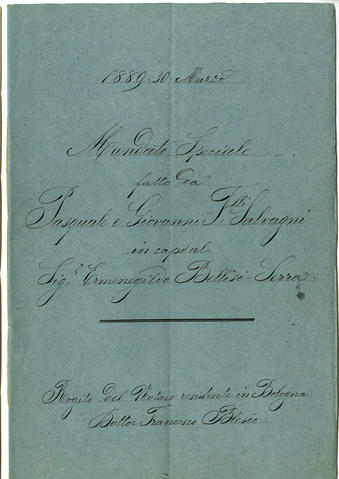 1889. 30. Marzo
Mandato Speciale
fatto da
Pasquale e Giovanni F.lli Salvagni
in capo al
Sig.r Ermenegildo Bellisi-Serra.
Rogito del Notaro residente in Bologna
Dottor Francesco